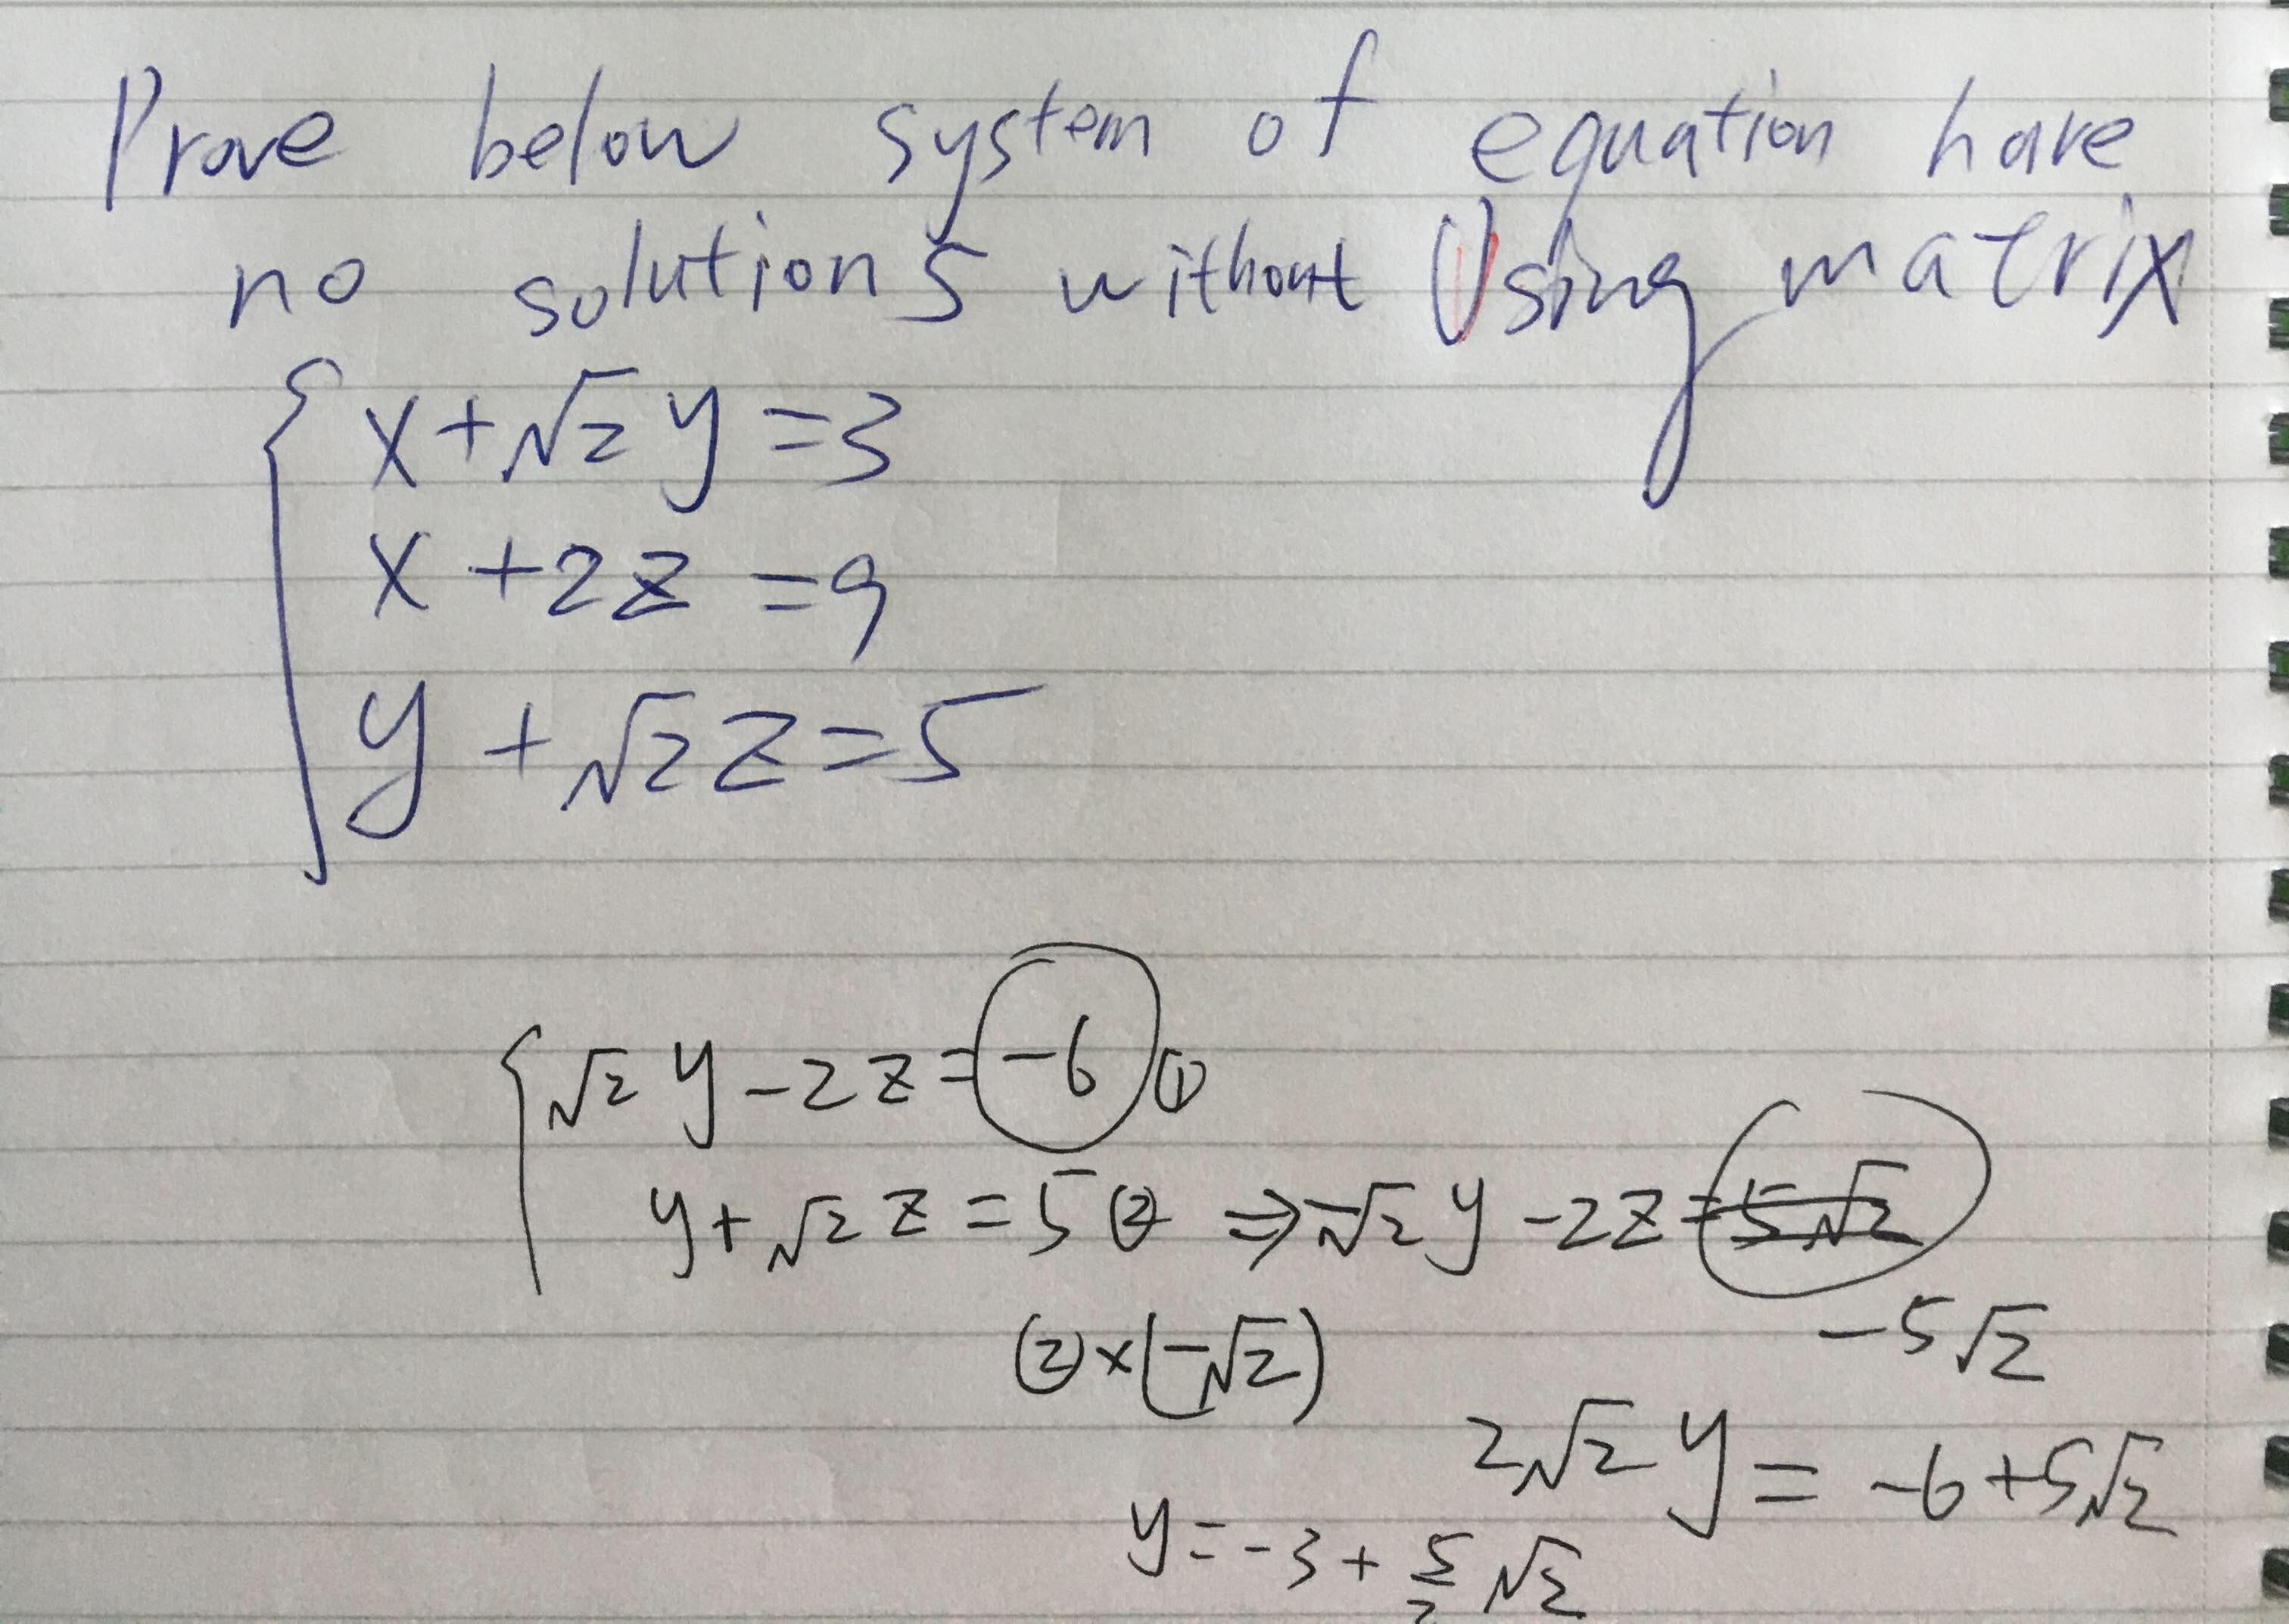 Prove below system of equation have
no solutions without Using matrix
x+√2 y =3
x +2z =9
y +√2 z=5
√2 y -2z = -6 ①
y+√2 z = 5 ② ⇒ -√2 y -2z =5√2
-5√2
②×(-√2)
2√2 y = -6+5√2
y = -3 + 5/2 √2